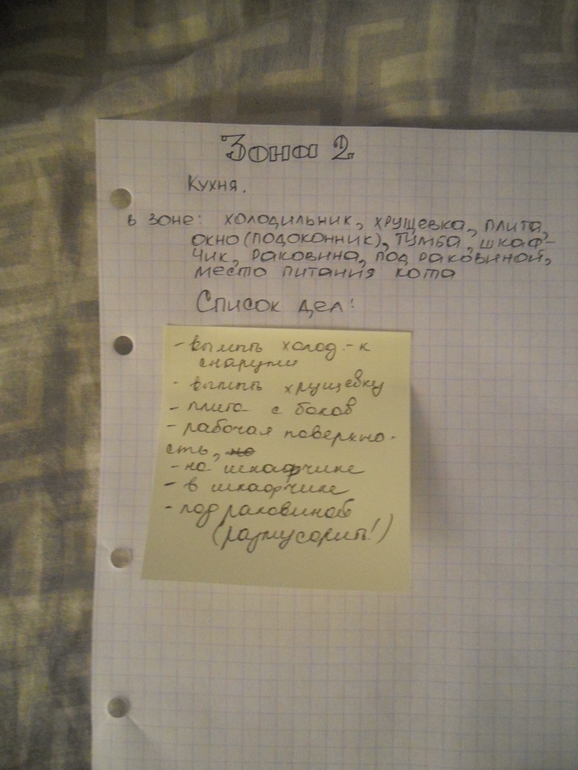 Зона 2
Кухня.
в зоне: холодильник, хрущевка, плита,
окно (подоконник), тумба, шкаф-
чик, раковина, под раковиной,
место питания кота
Список дел:
- вымыть холод.-к
снаружи
- вымыть хрущевку
- плита с боков
- рабочая поверхно-
сть, на
- на шкафчике
- в шкафчике
- под раковиной
(размусорить!)